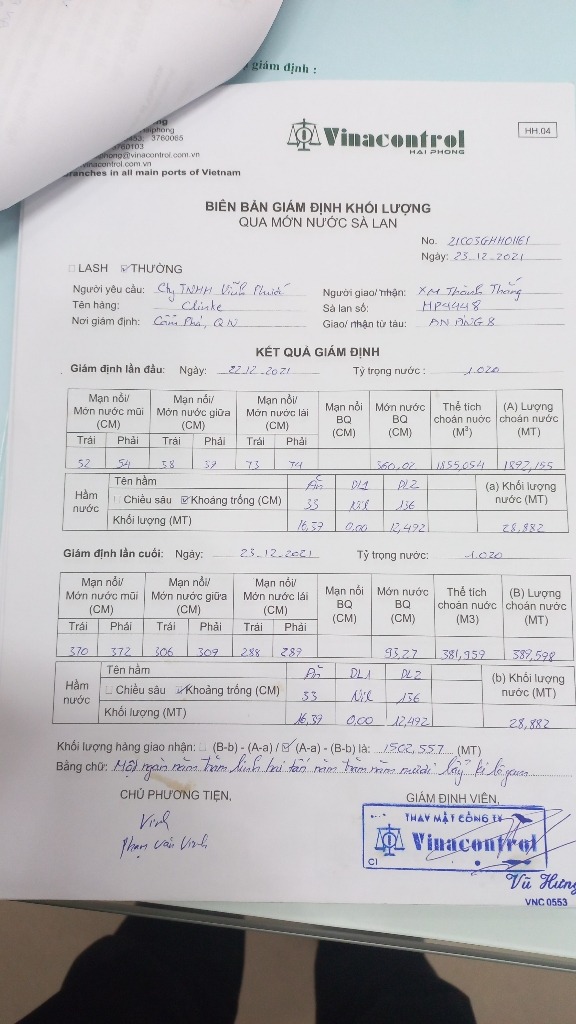 giám định :
ng
iphong
453, 3760065
3760103
phong@vinacontrol.com.vn
inacontrol.com.vn
anches in all main ports of Vietnam
Vinacontrol
HAI PHONG
HH.04
BIÊN BẢN GIÁM ĐỊNH KHỐI LƯỢNG
QUA MỚN NƯỚC SÀ LAN
No. 21C03GHH01161
Ngày: 23-12-2021
LASH THƯỜNG
Người yêu cầu: Cty TNHH Vĩnh Phước Người giao/nhận: XM Thành Thắng
Tên hàng: Clinke Sà lan số: HP4448
Nơi giám định: Cẩm Phả, QN Giao/ nhận từ tàu: AN PING 8
KẾT QUẢ GIÁM ĐỊNH
Giám định lần đầu: Ngày: 22.12.2021 Tỷ trọng nước : 1.020
Mạn nổi/ Mớn nước mũi (CM) Mạn nổi/ Mớn nước giữa (CM) Mạn nổi/ Mớn nước lái (CM) Mạn nổi BQ (CM) Mớn nước BQ (CM) Thể tích choán nước (M3) (A) Lượng choán nước (MT)
Trái Phải Trái Phải Trái Phải
52 54 38 37 73 74 360.02 1855,054 1892,155
Hầm nước Tên hầm Pn DL1 DL2 (a) Khối lượng nước (MT)
Chiều sâu Khoảng trống (CM) 33 Nil 136
Khối lượng (MT) 16,39 0,00 12,492 28,882
Giám định lần cuối: Ngày: 23.12.2021 Tỷ trọng nước: 1.020
Mạn nổi/ Mớn nước mũi (CM) Mạn nổi/ Mớn nước giữa (CM) Mạn nổi/ Mớn nước lái (CM) Mạn nổi BQ (CM) Mớn nước BQ (CM) Thể tích choán nước (M3) (B) Lượng choán nước (MT)
Trái Phải Trái Phải Trái Phải
370 372 306 309 288 289 93.27 381,959 389,598
Hầm nước Tên hầm Pn DL1 DL2 (b) Khối lượng nước (MT)
Chiều sâu Khoảng trống (CM) 33 Nil 136
Khối lượng (MT) 16,39 0,00 12,492 28,882
Khối lượng hàng giao nhận: (B-b) - (A-a) / (A-a) - (B-b) là: 1502,557 (MT)
Bằng chữ: Một ngàn năm trăm linh hai tấn năm trăm năm mươi bẩy ki lô gam
CHỦ PHƯƠNG TIỆN, GIÁM ĐỊNH VIÊN,
Vinh
Phạm Văn Vinh
THAY MẶT CÔNG TY
Vinacontrol
CI
Vũ Hưng
VNC 0553